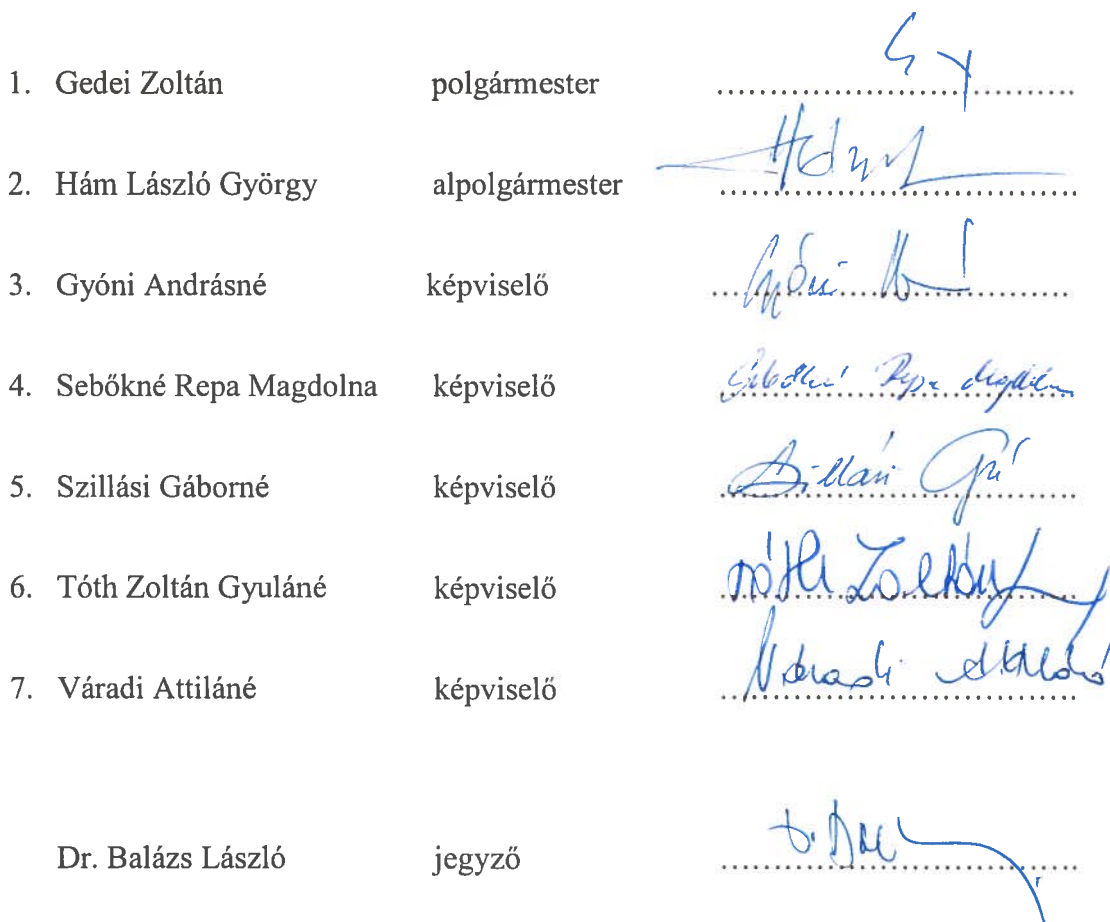 1. Gedei Zoltán polgármester
2. Hám László György alpolgármester
3. Gyóni Andrásné képviselő
4. Sebőkné Repa Magdolna képviselő
5. Szillási Gáborné képviselő
6. Tóth Zoltán Gyuláné képviselő Tóth Zoltán
7. Váradi Attiláné képviselő Váradi Attiláné
Dr. Balázs László jegyző